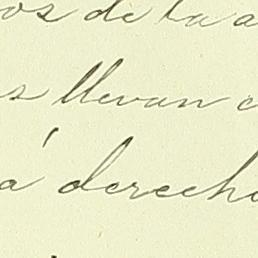 os de la a
s llevan c
á derecho